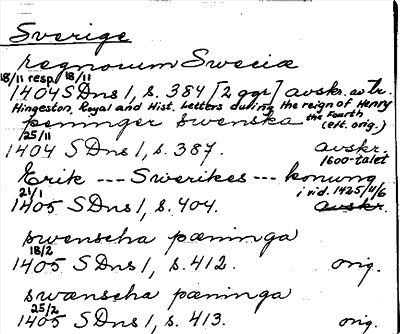 Sverige
regnorum Swecie
18/11 resp. 18/11
1404 S Dns 1, s. 384 [2 ggr] avskr. av tr.
Hingeston, Royal and Hist. Letters during the reign of Henry
the Fourth
peninger swenska (eft. orig.)
25/11
1404 S Dns 1, s. 387. avskr.
1600-talet
Erik --- Swerikes --- konung
21/1 i vid. 1425 11/6
1405 S Dns 1, s. 404. avskr.
swenscha pæninga
18/2
1405 S Dns 1, s. 412. orig.
swænscha pæninga
25/2
1405 S Dns 1, s. 413. orig.